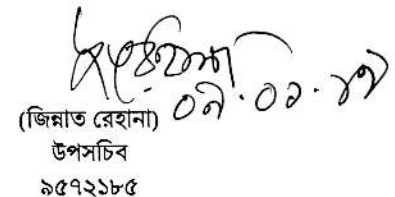 ০৯.০১.১৭
(জিন্নাত রেহানা)
উপসচিব
৯৫৭২১৮৫